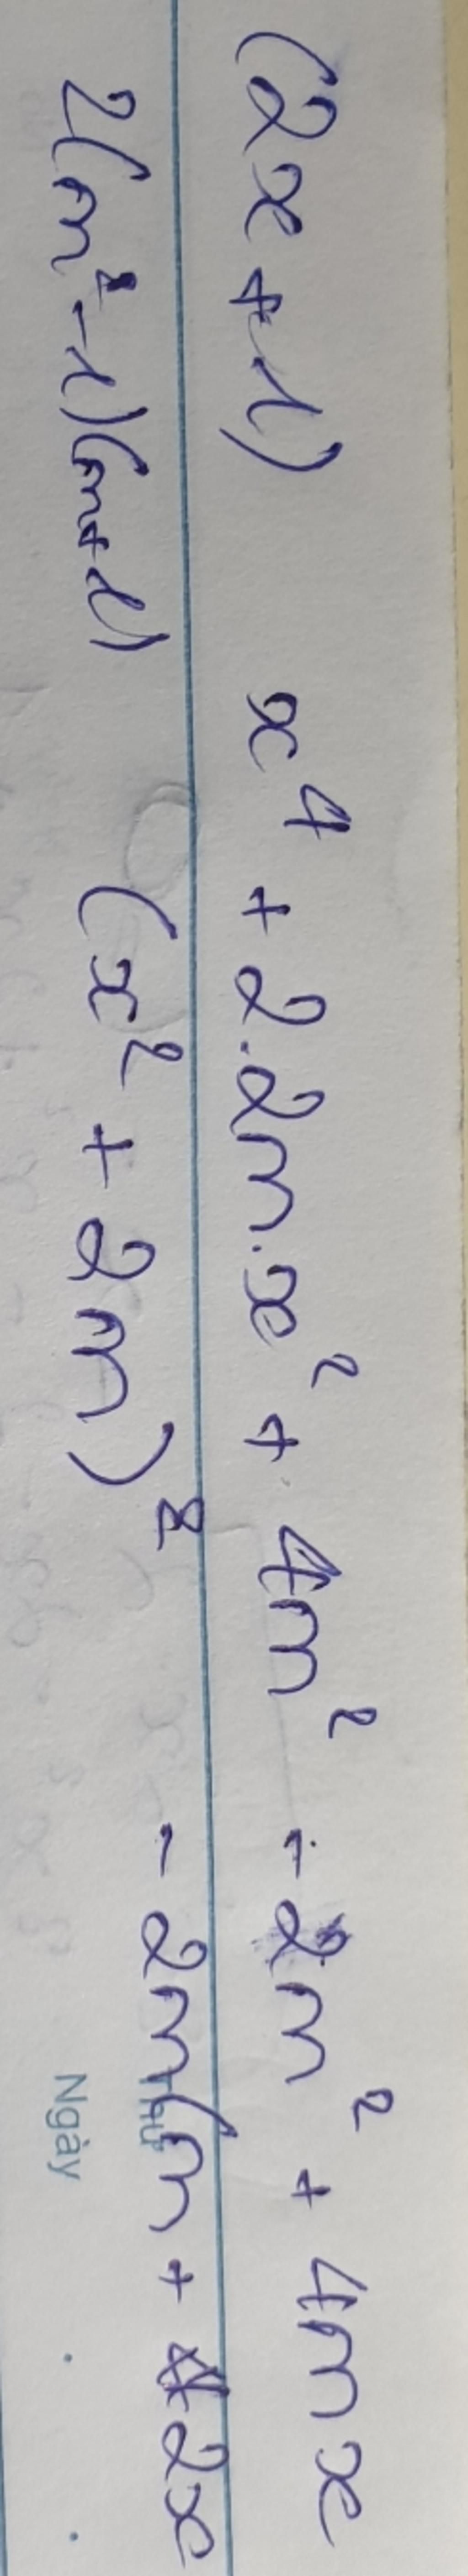 (2x+1) x⁴ + 2.2m.x² + 4m² - 2m² + 4mx
2(m²-1)(m+1) (x² + 2m)² - 2m(m + 2x
Thứ
Ngày